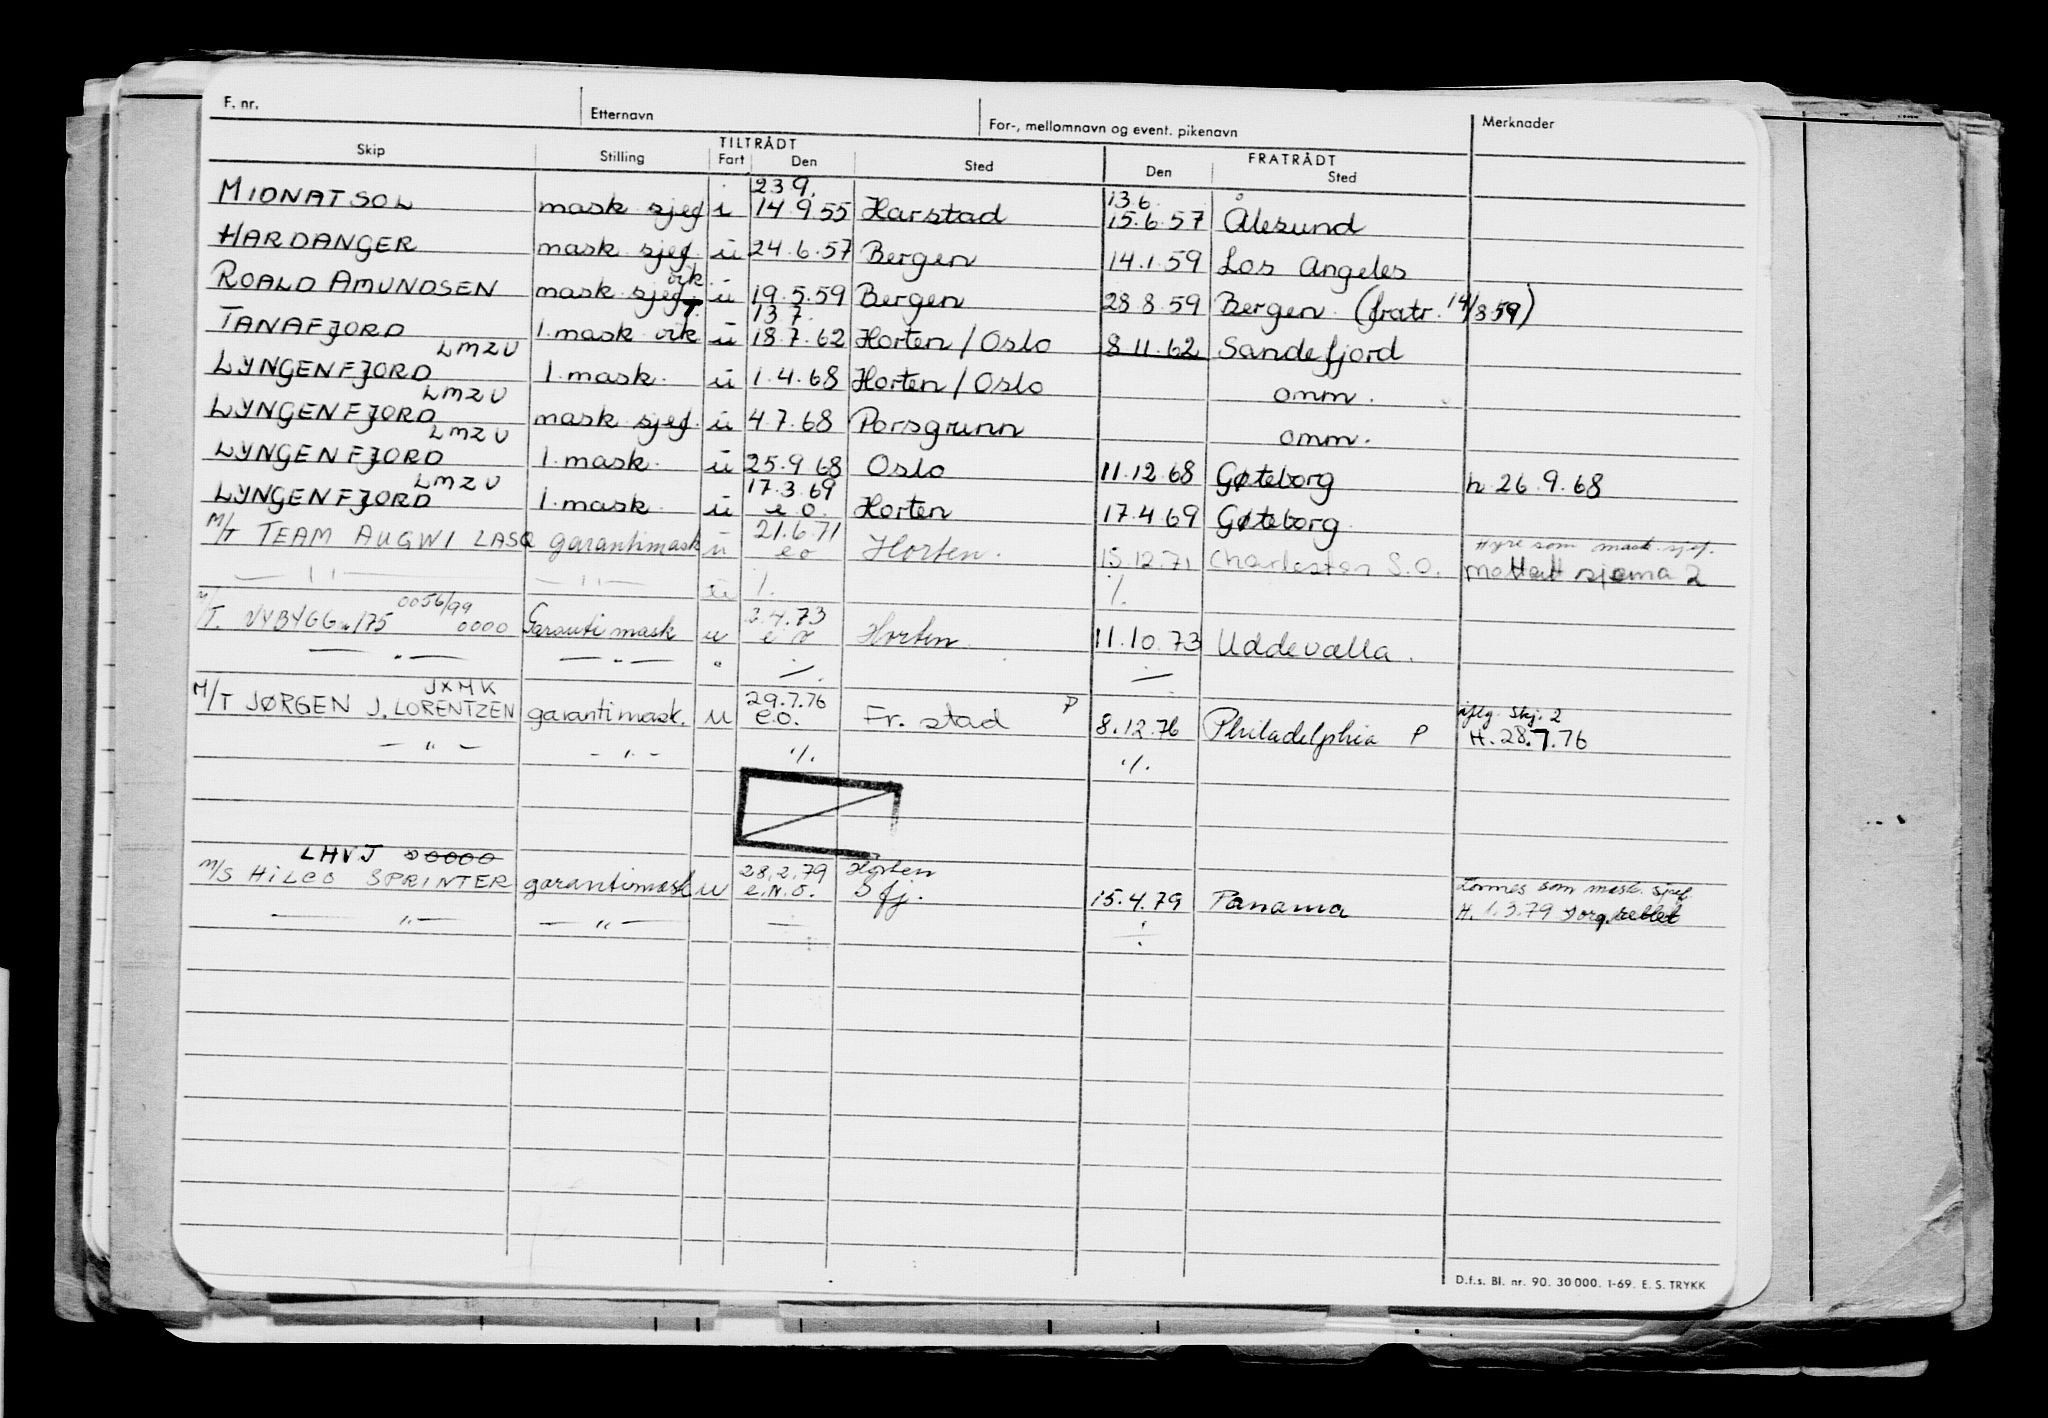 F. nr. Etternavn For-, mellomnavn og event. pikenavn Merknader
TILTRÅDT FRATRÅDT
Skip Stilling Fart Den Sted Den Sted
23 9. 13.6.
MIDNATSOL mask sjef i 14.9.55 Harstad 15.6.57 Ålesund
HARDANGER mask sjef. u 24.6.57 Bergen 14.1.59 Los Angeles
vik
ROALD AMUNDSEN mask sjef. u 19.5.59 Bergen 28 8.59 Bergen (fratr. 14/8 59)
13 7.
TANAFJORD 1. mask vik u 18.7.62 Horten / Oslo 8 11.62 Sandefjord
LMZU
LYNGENFJORD 1. mask. u 1.4.68 Horten / Oslo omm.
LMZU
LYNGENFJORD mask sjef. u 4.7.68 Porsgrunn omm.
LMZU
LYNGENFJORD 1. mask. u 25.9 68 Oslo 11.12.68 Gøteborg h. 26.9.68
LMZU 17.3.69
LYNGENFJORD 1. mask u e o. Horten 17.4 69 Gøteborg
21.6.71 Hyre som mask. sjef.
M/T TEAM AUGWI LASQ garantimask u e o Horten. 15.12.71 Charleston S.O. Mottatt sjema 2
— 〃 — — 〃 — u ·/. ·/.
0056/99 .4.73
M/T. NYBYGG 175 0000 Garanti mask u e o Horten 11.10.73 Uddevalla.
— 〃 — — 〃 — 〃 ·/. ·/.
JXMK 29.7.76 iflg. Skj. 2
M/T JØRGEN J. LORENTZEN garantimask. u e.o. Fr. stad P 8.12.76 Philadelphia P H. 28.7.76
— 〃 — — 〃 — ·/. ·/.
LHVJ 00000 28.2.79 Horten Lønnes som mask. sjef.
M/S HILCO SPRINTER garantimask u e.N.O. S fj. 15.4.79 Panama H. 1.3.79
— 〃 — — 〃 — ÷ ÷
D.f.s. Bl. nr. 90. 30 000. 1-69. E. S. TRYKK